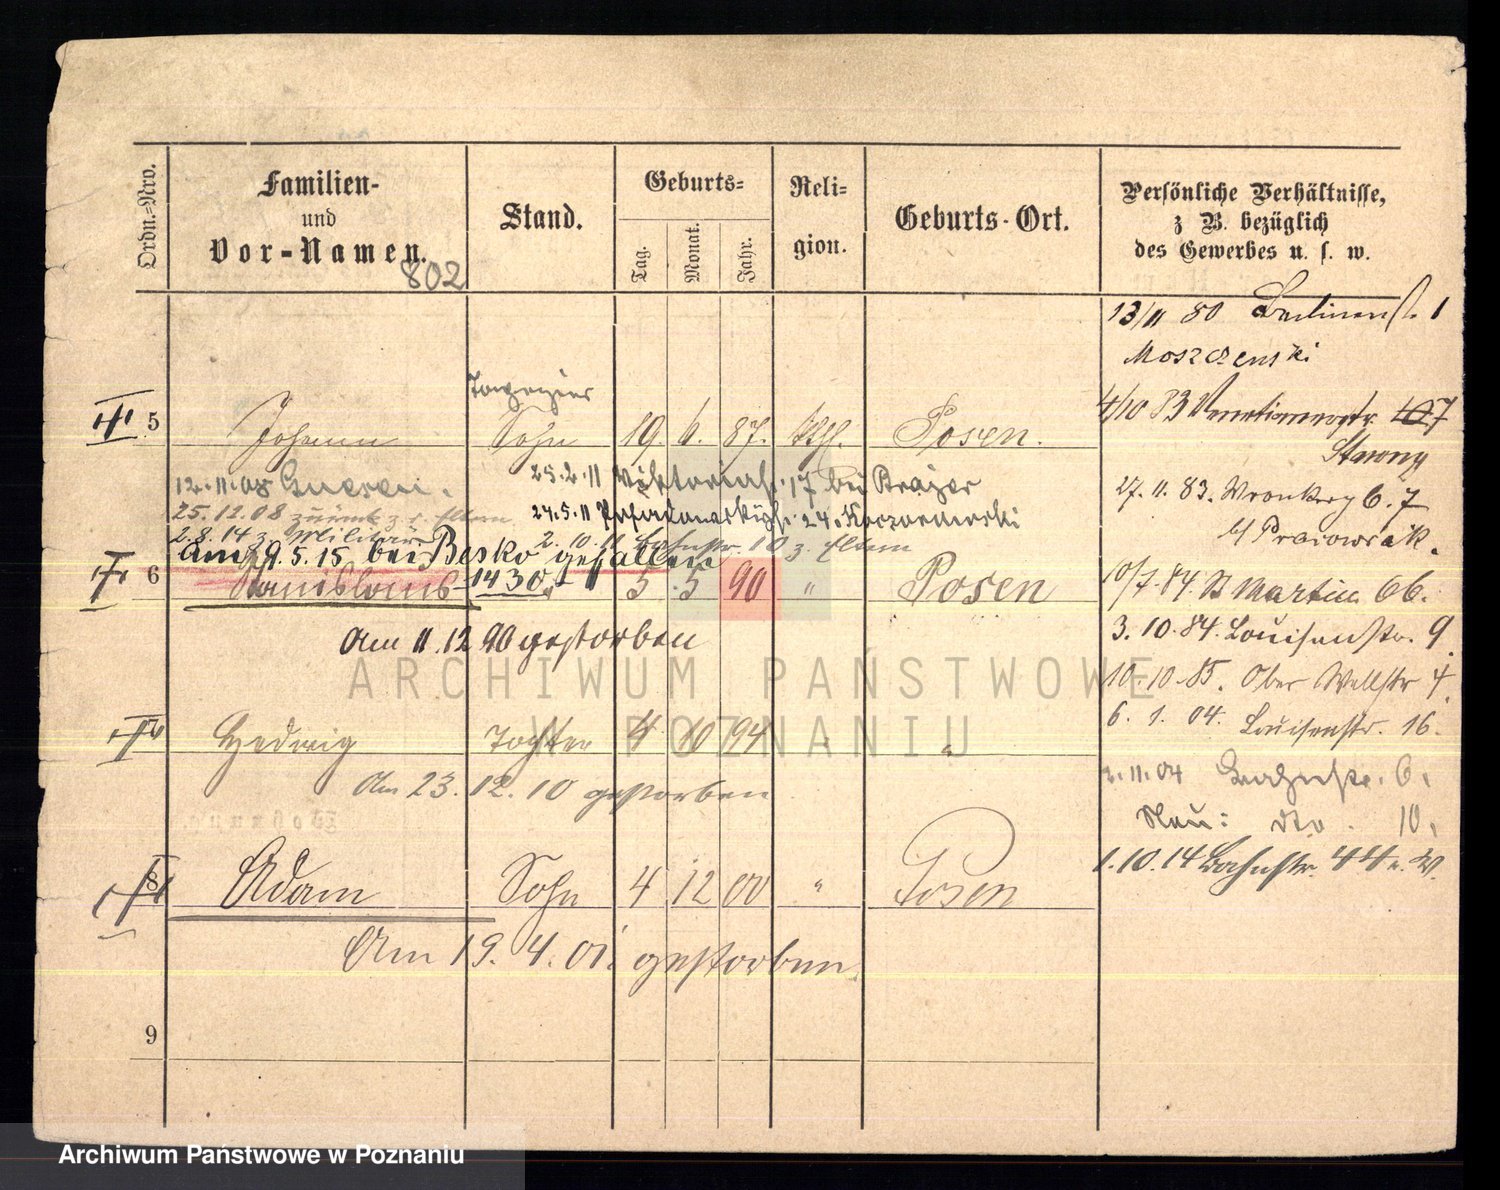 Ordn.=Nro.
Familien-
und
Vor-Namen.
802
Stand.
Geburts=
Tag.
Monat.
Jahr.
Reli-
gion.
Geburts-Ort.
Persönliche Verhältnisse,
z. B. bezüglich
des Gewerbes u. s. w.
13/11 80 Berlinerst. 1
Moszczenski
Tapezier
5 Johann Sohn 19. 6. 87. kth. Posen.
4/10 83 Venetianerstr. 7
27. 11. 83. Wronkerg 6. 7
12.11.08 Gnesen.
25.2.11 Viktoriast. 17 bei
25.12.08 zurück z. d. Eltern
24.5.11 24.
2.8.14 z. Militär
2.10.11 Bahnstr. 10 z. Eltern
am 9.5.15 bei Besko gefallen
6 Stanislaus 1430 5 5 90 " Posen
am 11.12.90 gestorben
10/7. 84. St Martin 66.
3. 10. 84. Louisenstr. 9
10.10.85. Ober Wallstr 4.
6. 1. 04. Louisenstr. 16.
7 Hedwig Tochter 4 10 94 " "
am 23. 12. 10 gestorben
2.11.04 Bahnstr. 6.
Neu: dto. 10.
1.10.14 Bahnstr. 44
8 Adam Sohn 4 12 00 " Posen
Am 19. 4. 01. gestorben
9
ARCHIWUM PAŃSTWOWE
W POZNANIU
Archiwum Państwowe w Poznaniu